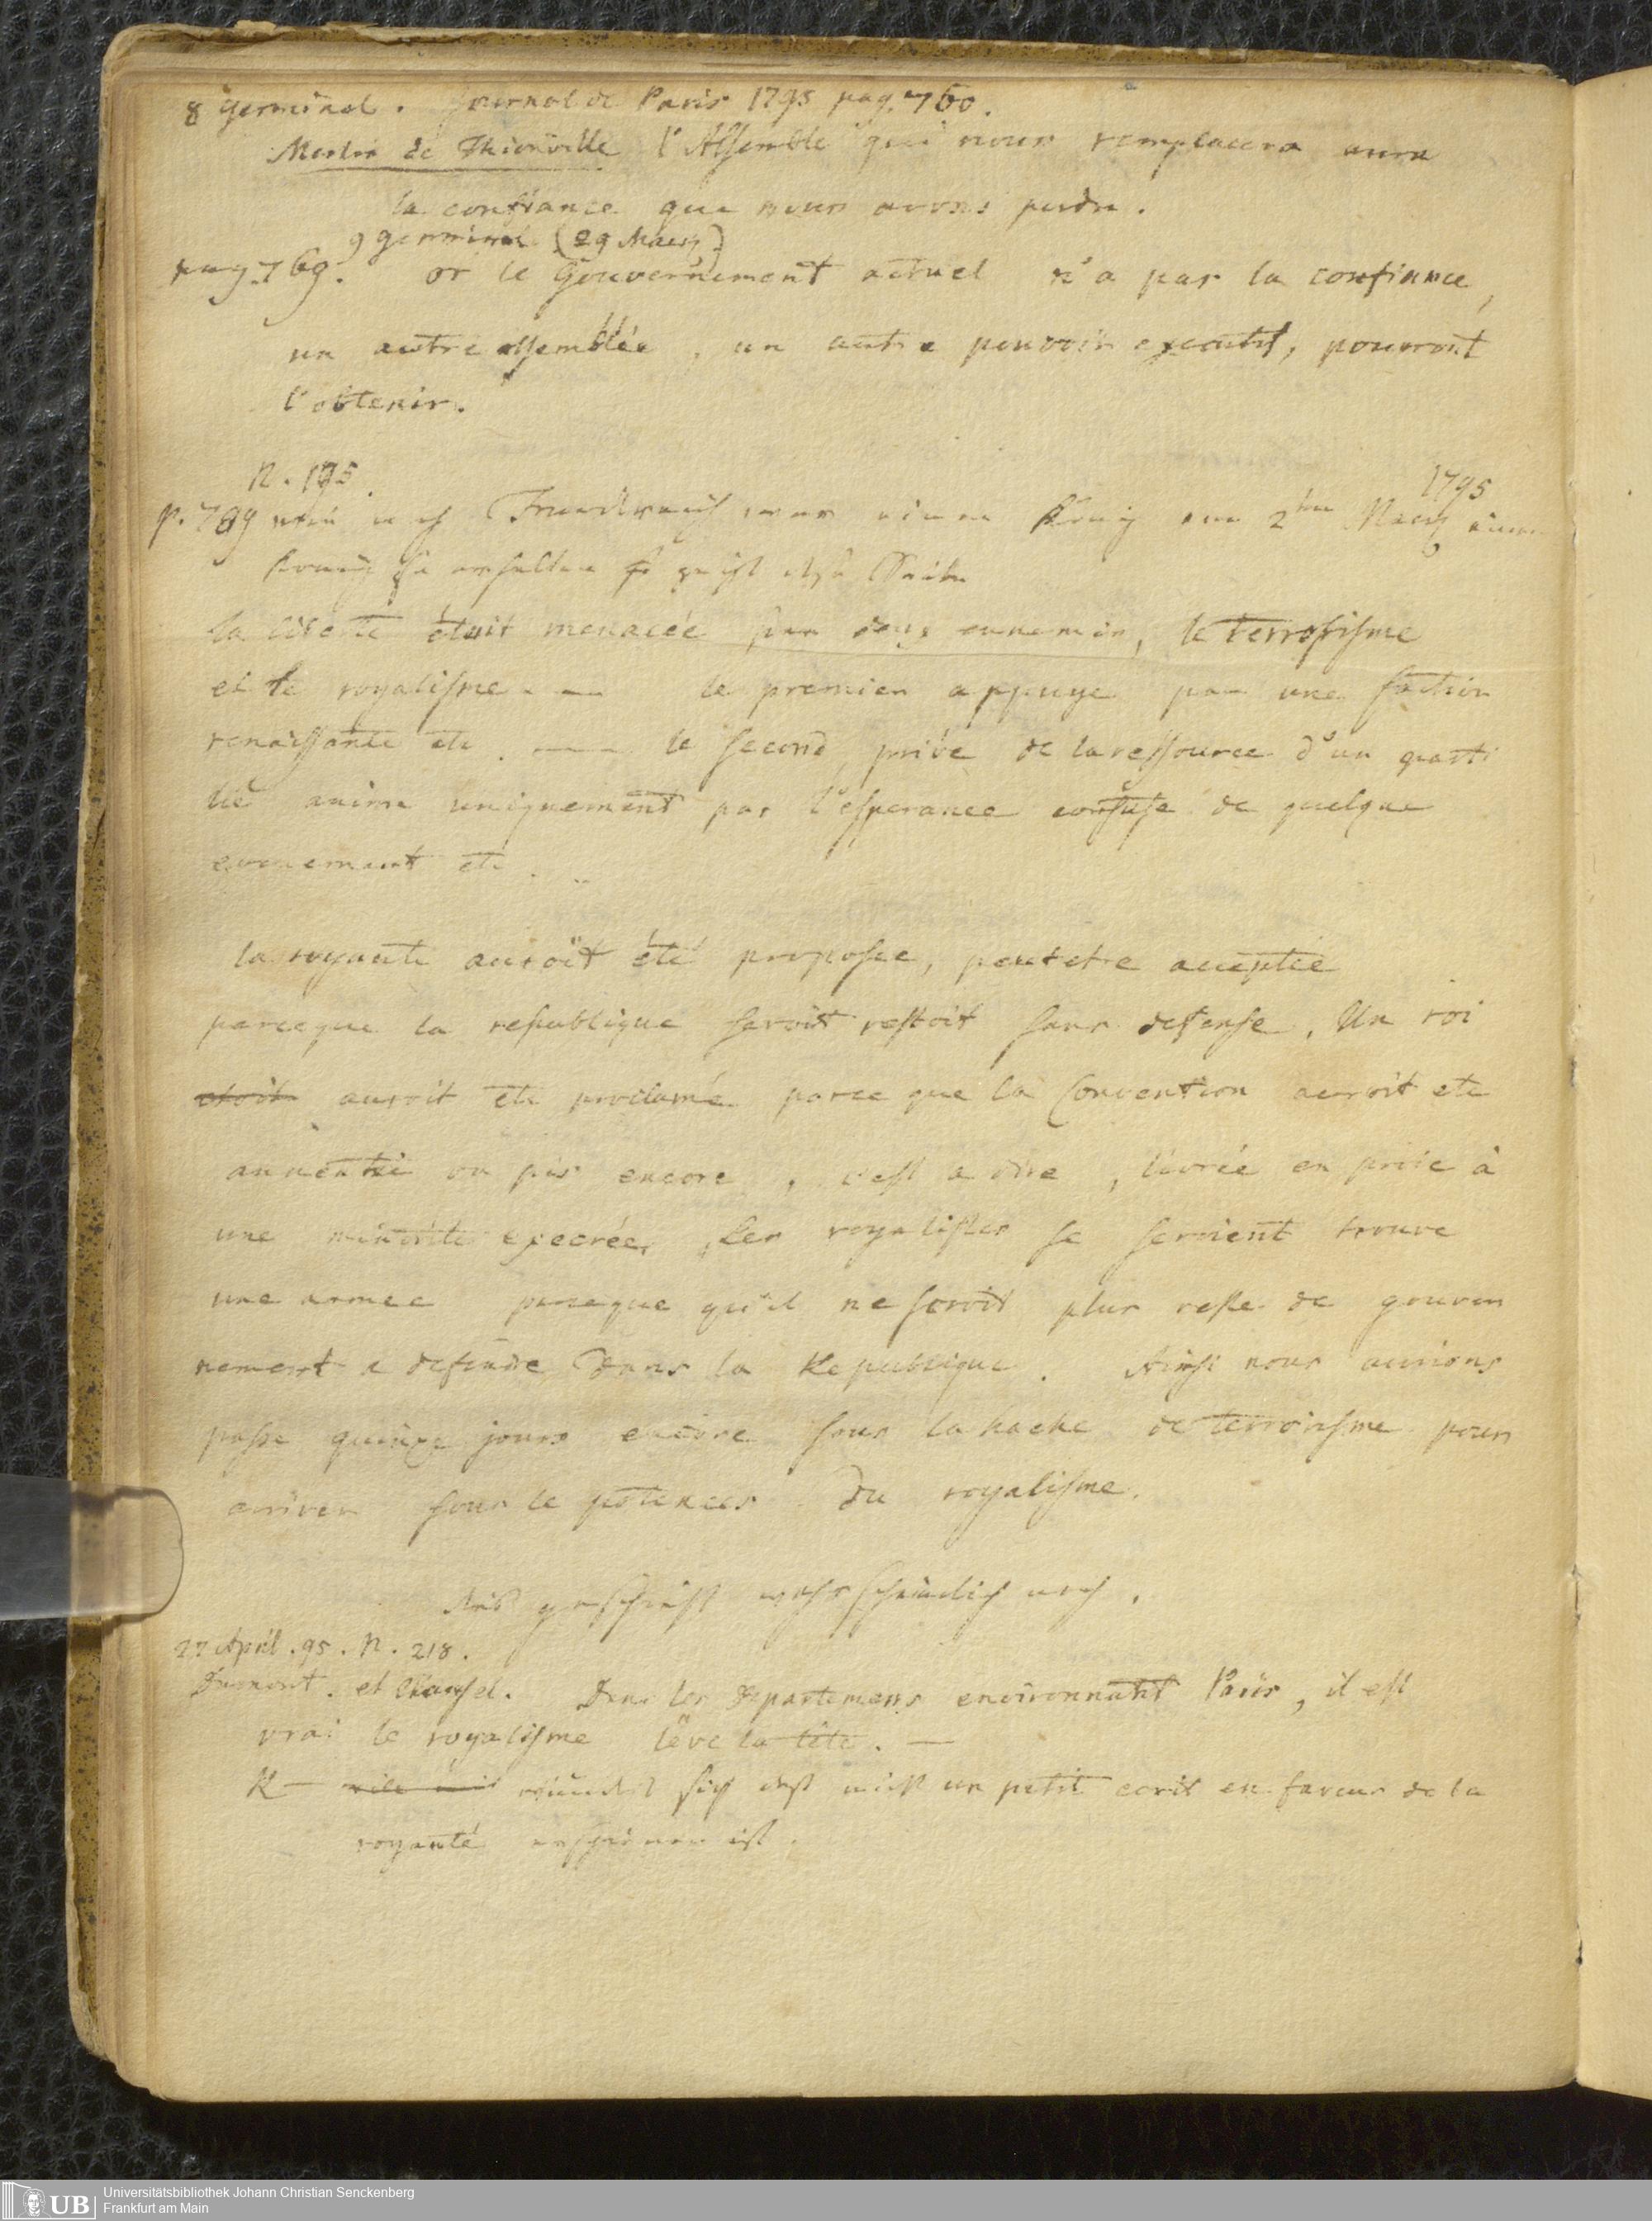 8 germinal. Journal de Paris 1795 pag. 760.
Merlin de Thionville l'Assemble qui nous remplacera aura
la confiance que nous avons perdu.
9 germinal (29 Merz)
pag. 769. or le Gouvernement actuel n'a pas la confiance,
un autre assemblée, un autre pouvoir executif, pourront
l'obtenir.
N. 195. 1795
p. 789 nach Frankreich einen König 2ten Merz
König zu erhalten
la liberté étoit menacée par deux ennemis, le terrorisme
et le royalisme. — le premier appuye par une faction
renaissante etc. — le second privé de la ressource d'un parti
lié anime uniquement par l'esperance confuse de quelque
evenement etc. ..
la royauté auroit été proposee, peutetre acceptée
parceque la republique seroit restoit sans defense. Un roi
etoit auroit ete proclamé parce que la Convention auroit ete
anneantie ou pis encore, c'est a dire, livrée en proie à
une minorite execrée, Les royalistes se seroient trouve
une armee parceque qu'il ne seroit plus reste de gouver
nement a defendre Dans la Republique. Ainsi nous aurions
passe quinze jours encore sous la hache de terrorisme pour
arriver sous le potences du royalisme.
geschieht wahrscheinlich noch.
27 April. 95. N. 218.
Dumont. et Clausel. Dans les departemens environnant Paris, il est
vrai le royalisme lêve la tête. —
R — sich un petit ecrit en faveur de la
royauté erschienen ist.
UB
Universitätsbibliothek Johann Christian Senckenberg
Frankfurt am Main